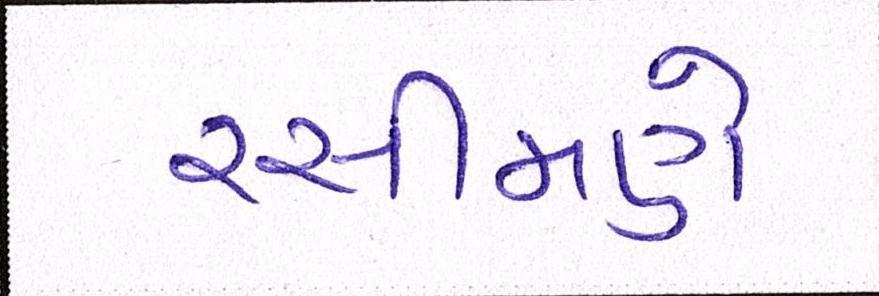 રસીમણે